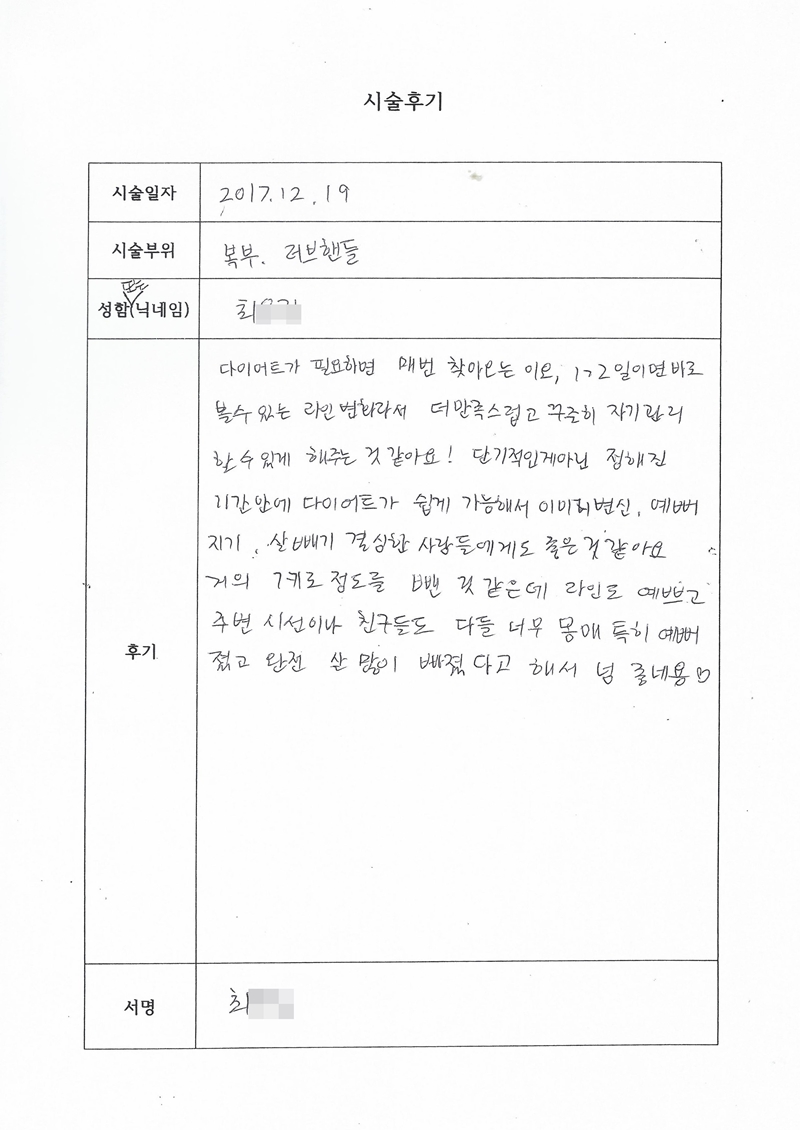 시술후기
시술일자 2017.12.19
시술부위 복부. 러브핸들
또는
성함(닉네임) 최
후기
다이어트가 필요하면 매번 찾아오는 이요, 1~2일이면바로
볼수있는 라인변화라서 더만족스럽고 꾸준히 자기관리
할수있게 해주는 것 같아요! 단기적인게아닌 정해진
기간안에 다이어트가 쉽게 가능해서 이미지변신, 예뻐
지기, 살빼기 결심한 사람들에게도 좋은것같아요
거의 7키로 정도를 뺀 것 같은데 라인도 예쁘고
주변 시선이나 친구들도 다들 너무 몸매 특히 예뻐
졌고 완전 살 많이 빠졌다고 해서 넘 좋네용♡
서명 최